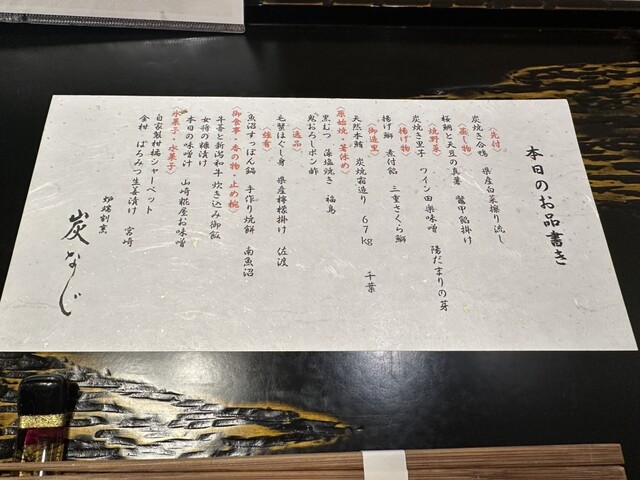 本日のお品書き
〈先付〉
炭焼き合鴨 県産白菜擦り流し
〈蒸し物〉
桜鯛と天豆の真薯 鼈甲餡掛け
〈焼野菜〉
炭焼き里子 ワイン田楽味噌 陽だまりの芽
〈揚げ物〉
揚げ鰤 煮付餡 三重さくら鰤
〈御造里〉
天然本鮪 炭焼霜造り 67kg 千葉
〈原始焼・箸休め〉
黒むつ 藻塩焼き 福島
鬼おろしポン酢
〈逸品〉
毛蟹ほぐし身 県産檸檬掛け 佐渡
〈強肴〉
魚沼すっぽん鍋 手作り焼餅 南魚沼
〈御食事・香の物・止め椀〉
牛蒡と新潟和牛 炊き込み御飯
女将の糠漬け
本日の味噌汁 山崎糀屋お味噌
〈氷菓子・水菓子〉
自家製柑橘シャーベット
金柑 はちみつ生姜漬け 宮崎
炉端割烹
炭なじ